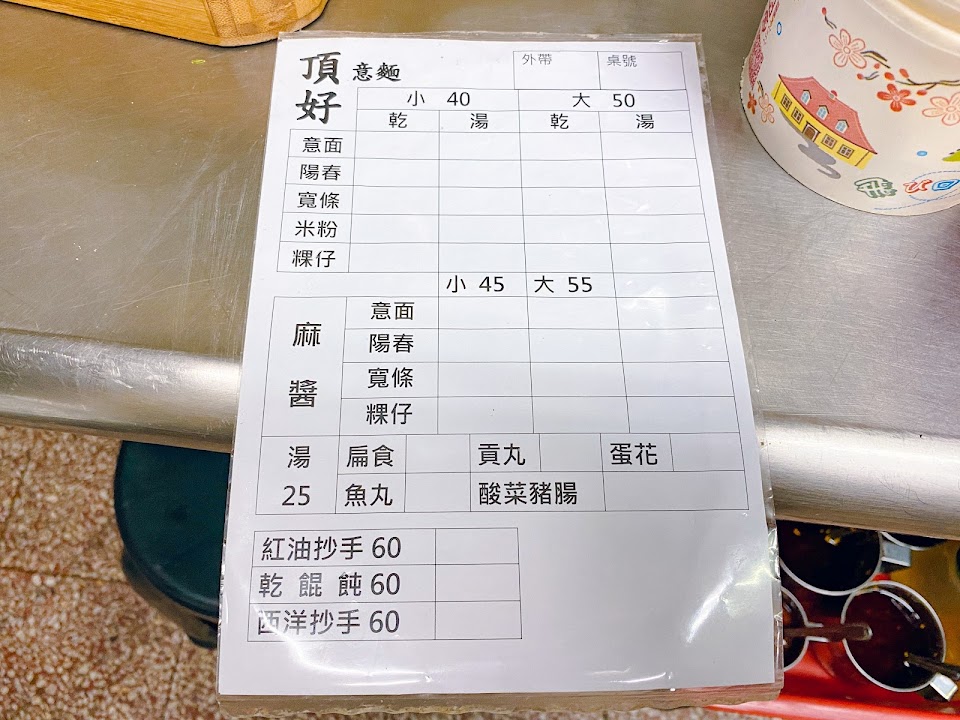 頂好 意麵
外帶 桌號
小 40 大 50
乾 湯 乾 湯
意面
陽春
寬條
米粉
粿仔
小 45 大 55
麻醬
意面
陽春
寬條
粿仔
湯 25
扁食 貢丸 蛋花
魚丸 酸菜豬腸
紅油抄手 60
乾餛飩 60
西洋抄手 60